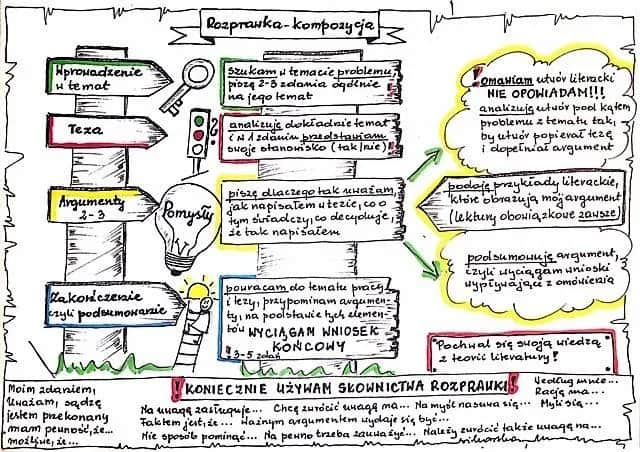 Rozprawka-kompozycja
Wprowadzenie
w temat
szukam w temacie problemu,
piszę 2-3 zdania ogólnie
na jego temat
Teza
analizuję dokładnie temat
i w 1 zdaniu przedstawiam
swoje stanowisko (tak/nie)
?
Argumenty
2-3
Pomysły
piszę dlaczego tak uważam,
jak napisałem w tezie, co o
tym świadczy, co decyduje,
że tak napisałem
Zakończenie
czyli podsumowanie
powracam do tematu pracy
i tezy, przypominam argumen-
ty, na podstawie tych elemen-
tów WYCIĄGAM WNIOSEK
KOŃCOWY
! 3-5 zdań
! omawiam utwór literacki
NIE OPOWIADAM!!!
analizuję utwór pod kątem
problemu z tematu tak,
by utwór popierał tezę
i dopełniał argument
podaję przykłady literackie,
które obrazują mój argument
(lektury obowiązkowe zawsze)
podsumowuję argument,
czyli wyciągam wnioski
wypływające z omówienia
Pochwal się swoją wiedzą
z teorii literatury!
! KONIECZNIE UŻYWAM SŁOWNICTWA ROZPRAWKI!
Moim zdaniem,
Uważam, sądzę
jestem przekonany
mam pewność, że...
możliwe, że...
Na uwagę zasługuje... Chcę zwrócić uwagę na... Na myśl nasuwa się...
Faktem jest, że... Ważnym argumentem wydaje się być...
Nie sposób pominąć... Na pewno trzeba zauważyć... Należy zwrócić także uwagę na...
Według mnie...
Rację ma...
Myślę...